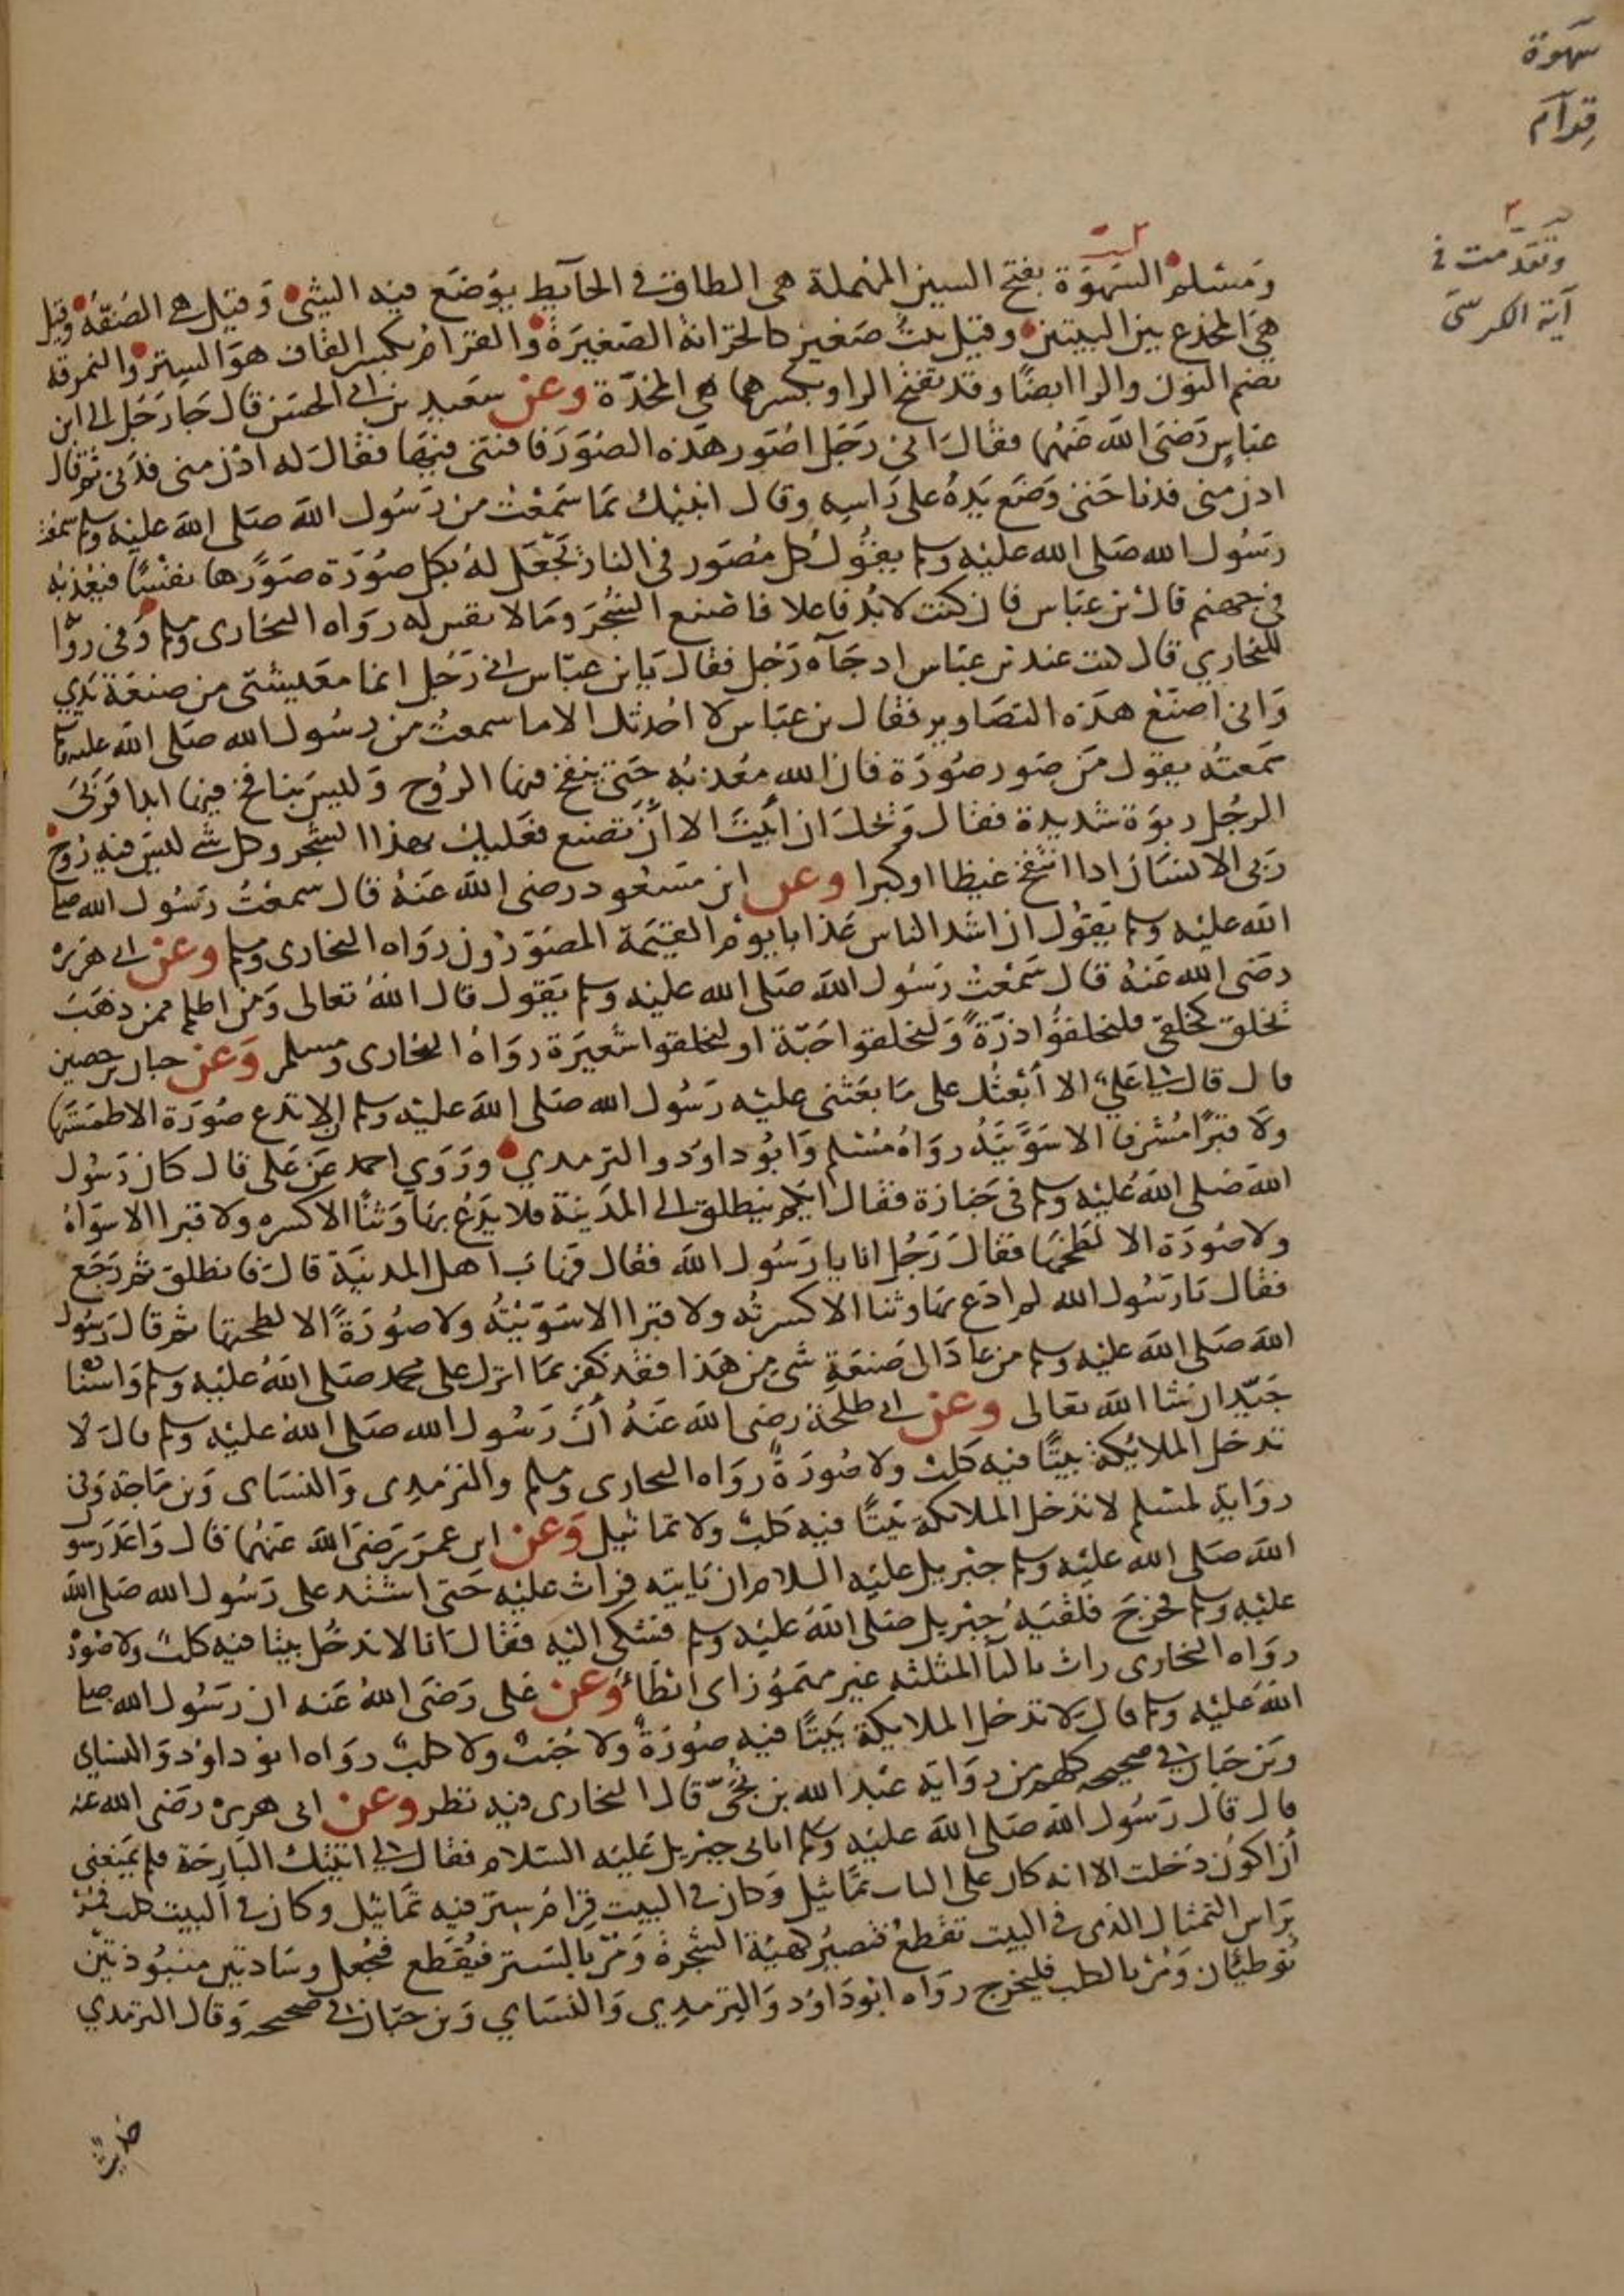 سهوة
قِرآم
وتقدمت في
آية الكرسي
ومسلم السهوة بفتح السين المهملة هي الطاق في الحآيط يوضع فيه الشي وقيل هي الصفة وقيل
هي المخدع بين البيتين وقيل بيت صغير كالخزانة الصغيرة والقرام بكسر القاف هو الستر والنمرقة
بضم النون والرا ايضًا وقد تفتح الرا وبكسرها هي المخدّة وعن سعيد بن ابي الحسن قال جا رجل الى ابن
عباس رضي الله عنهما فقال اني رجل اصور هذه الصور فافتني فيها فقال له ادن مني فدنى ثم قال
ادن مني فدنا حتى وضع يده على راسه وقال انبئك بما سمعت من رسول الله صلى الله عليه وسلم سمعت
رسول الله صلى الله عليه وسلم يقول كل مصور في النار تجعل له بكل صورة صورها نفسًا فيعذبه
في جهنم قال بن عباس فان كنت لابد فاعلا فاصنع الشجر وما لا نفس له رواه البخاري ومسلم وفي روا
للبخاري قال كنت عند بن عباس اذ جآه رجل فقال يا بن عباس اني رجل انما معيشتي من صنعة يدي
واني اصنع هذه التصاوير فقال بن عباس لا احدثك الا ما سمعت من رسول الله صلى الله عليه وسلم
سمعته يقول من صور صورة فان الله معذبه حتى ينفخ فيها الروح وليس بنافخ فيها ابدا فربى
الرجل ربوة شديدة فقال ويحك ان ابيت الا ان تصنع فعليك بهذا الشجر وكل شي ليس فيه روح
ربى الانسان اذا انتفخ غيظا او كبرا وعن ابن مسعود رضي الله عنه قال سمعت رسول الله صلى
الله عليه وسلم يقول ان اشد الناس عذابا يوم القيمة المصورون رواه البخاري ومسلم وعن ابي هريرة
رضي الله عنه قال سمعت رسول الله صلى الله عليه وسلم يقول قال الله تعالى ومن اظلم ممن ذهب
يخلق كخلقي فليخلقوا ذرة وليخلقوا حبة او ليخلقوا شعيرة رواه البخاري ومسلم وعن حبان بن حصين
قال قال لي علي الا أبعثك على ما بعثني عليه رسول الله صلى الله عليه وسلم ان لا تدع صورة الا طمستها
ولا قبرًا مشرفا الا سويته رواه مسلم وابو داود والترمدي وروي احمد عن علي قال كان رسول
الله صلى الله عليه وسلم في جنازة فقال ايكم ينطلق الى المدينة فلا يدع بها وثنًا الا كسره ولا قبرا الا سواه
ولا صورة الا لطخها فقال رجل انا يا رسول الله فقال فهاب اهل المدينة قال فانطلق ثم رجع
فقال يا رسول الله لم ادع بها وثنا الا كسرته ولا قبرا الا سويته ولا صورةً الا لطختها ثم قال رسول
الله صلى الله عليه وسلم من عاد الى صنعة شي من هذا فقد كفر بما انزل على محمد صلى الله عليه وسلم واسناده
جيد ان شا الله تعالى وعن ابي طلحة رضي الله عنه أن رسول الله صلى الله عليه وسلم قال لا
تدخل الملائكة بيتًا فيه كلب ولا صورةً رواه البخاري ومسلم والترمدى والنساى وبن ماجة وفي
رواية لمسلم لا تدخل الملائكة بيتًا فيه كلب ولا تماثيل وعن ابن عمر رضي الله عنهما قال واعد رسول
الله صلى الله عليه وسلم جبريل عليه السلام ان ياتيه فراث عليه حتى اشتد على رسول الله صلى الله
عليه وسلم فخرج فلقيه جبريل صلى الله عليه وسلم فشكى اليه فقال انا لا ندخل بيتا فيه كلب ولا صورة
رواه البخاري راث بالثأ المثلثه غير مهموز اى ابطأ وعن على رضى الله عنه ان رسول الله صلى
الله عليه وسلم قال لا تدخل الملايكة بيتًا فيه صورةٌ ولا جنب ولا كلب رواه ابو داود والنساي
وبن حبان في صحيحه كلهم من رواية عبد الله بن نجيّ قال البخارى فيه نظر وعن ابي هريرة رضي الله عنه
قال قال رسول الله صلى الله عليه وسلم اتاني جبريل عليه السلام فقال لي اتيتك البارحة فلم يمنعني
أن اكون دخلت الا انه كان على الباب تماثيل وكان في البيت قرام ستر فيه تماثيل وكان في البيت كلب فمر
براس التمثال الذي في البيت تقطع فتصير كهيئة الشجرة ومر بالستر فيقطع فيجعل وسادتين منبوذتين
توطئان ومر بالكلب فليخرج رواه ابو داود والترمدي والنساي وبن حبان في صحيحه وقال الترمدي